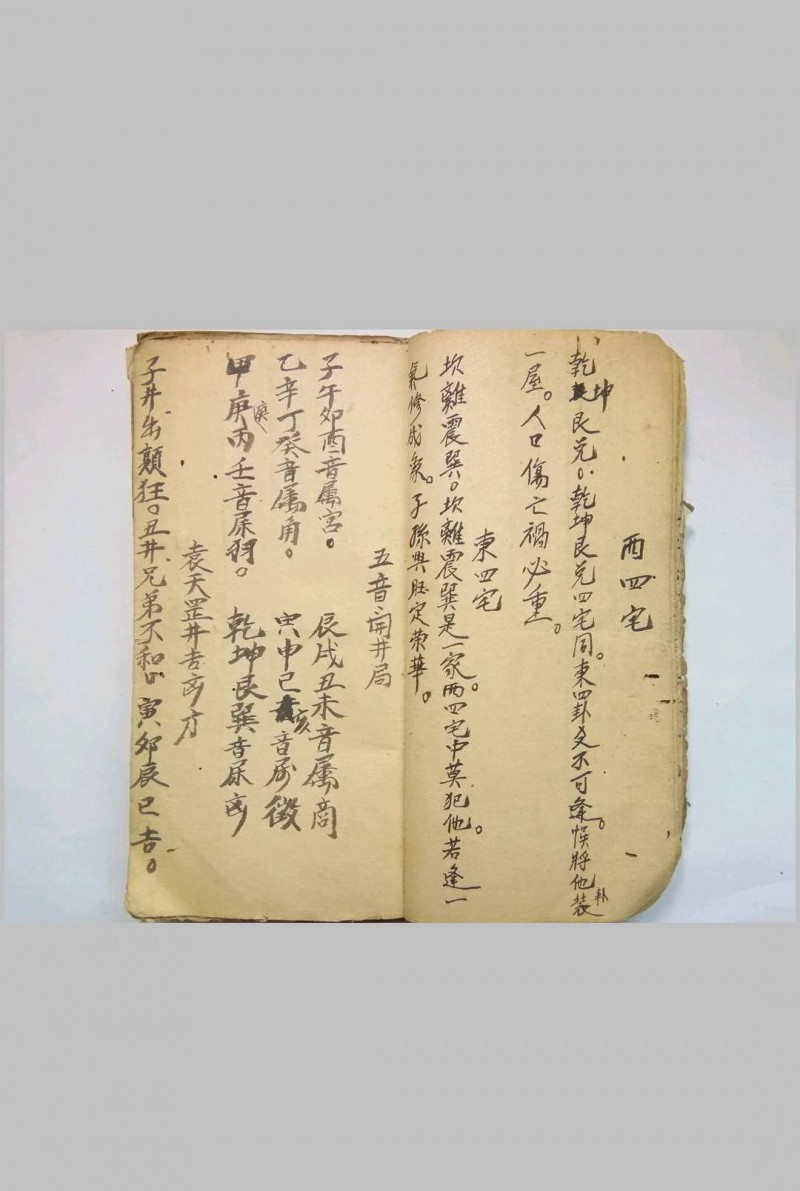 西四宅
乾坤艮兑。乾坤艮兑四宅同。東四卦爻不可逢。悮將他卦装
一屋。人口傷亡禍必重。
東四宅
坎離震巽。坎離震巽是一家。西四宅中莫犯他。若逢一
氣修成象。子孫興旺定荣華。
五音開井局
子午卯酉音属宫。 辰戌丑未音属商
乙辛丁癸音属角。 寅申巳亥音属徵
甲庚丙壬音属羽。 乾坤艮巽音属
袁天罡井吉凶方
子井出顛狂。丑井兄弟不和 寅卯辰巳吉。